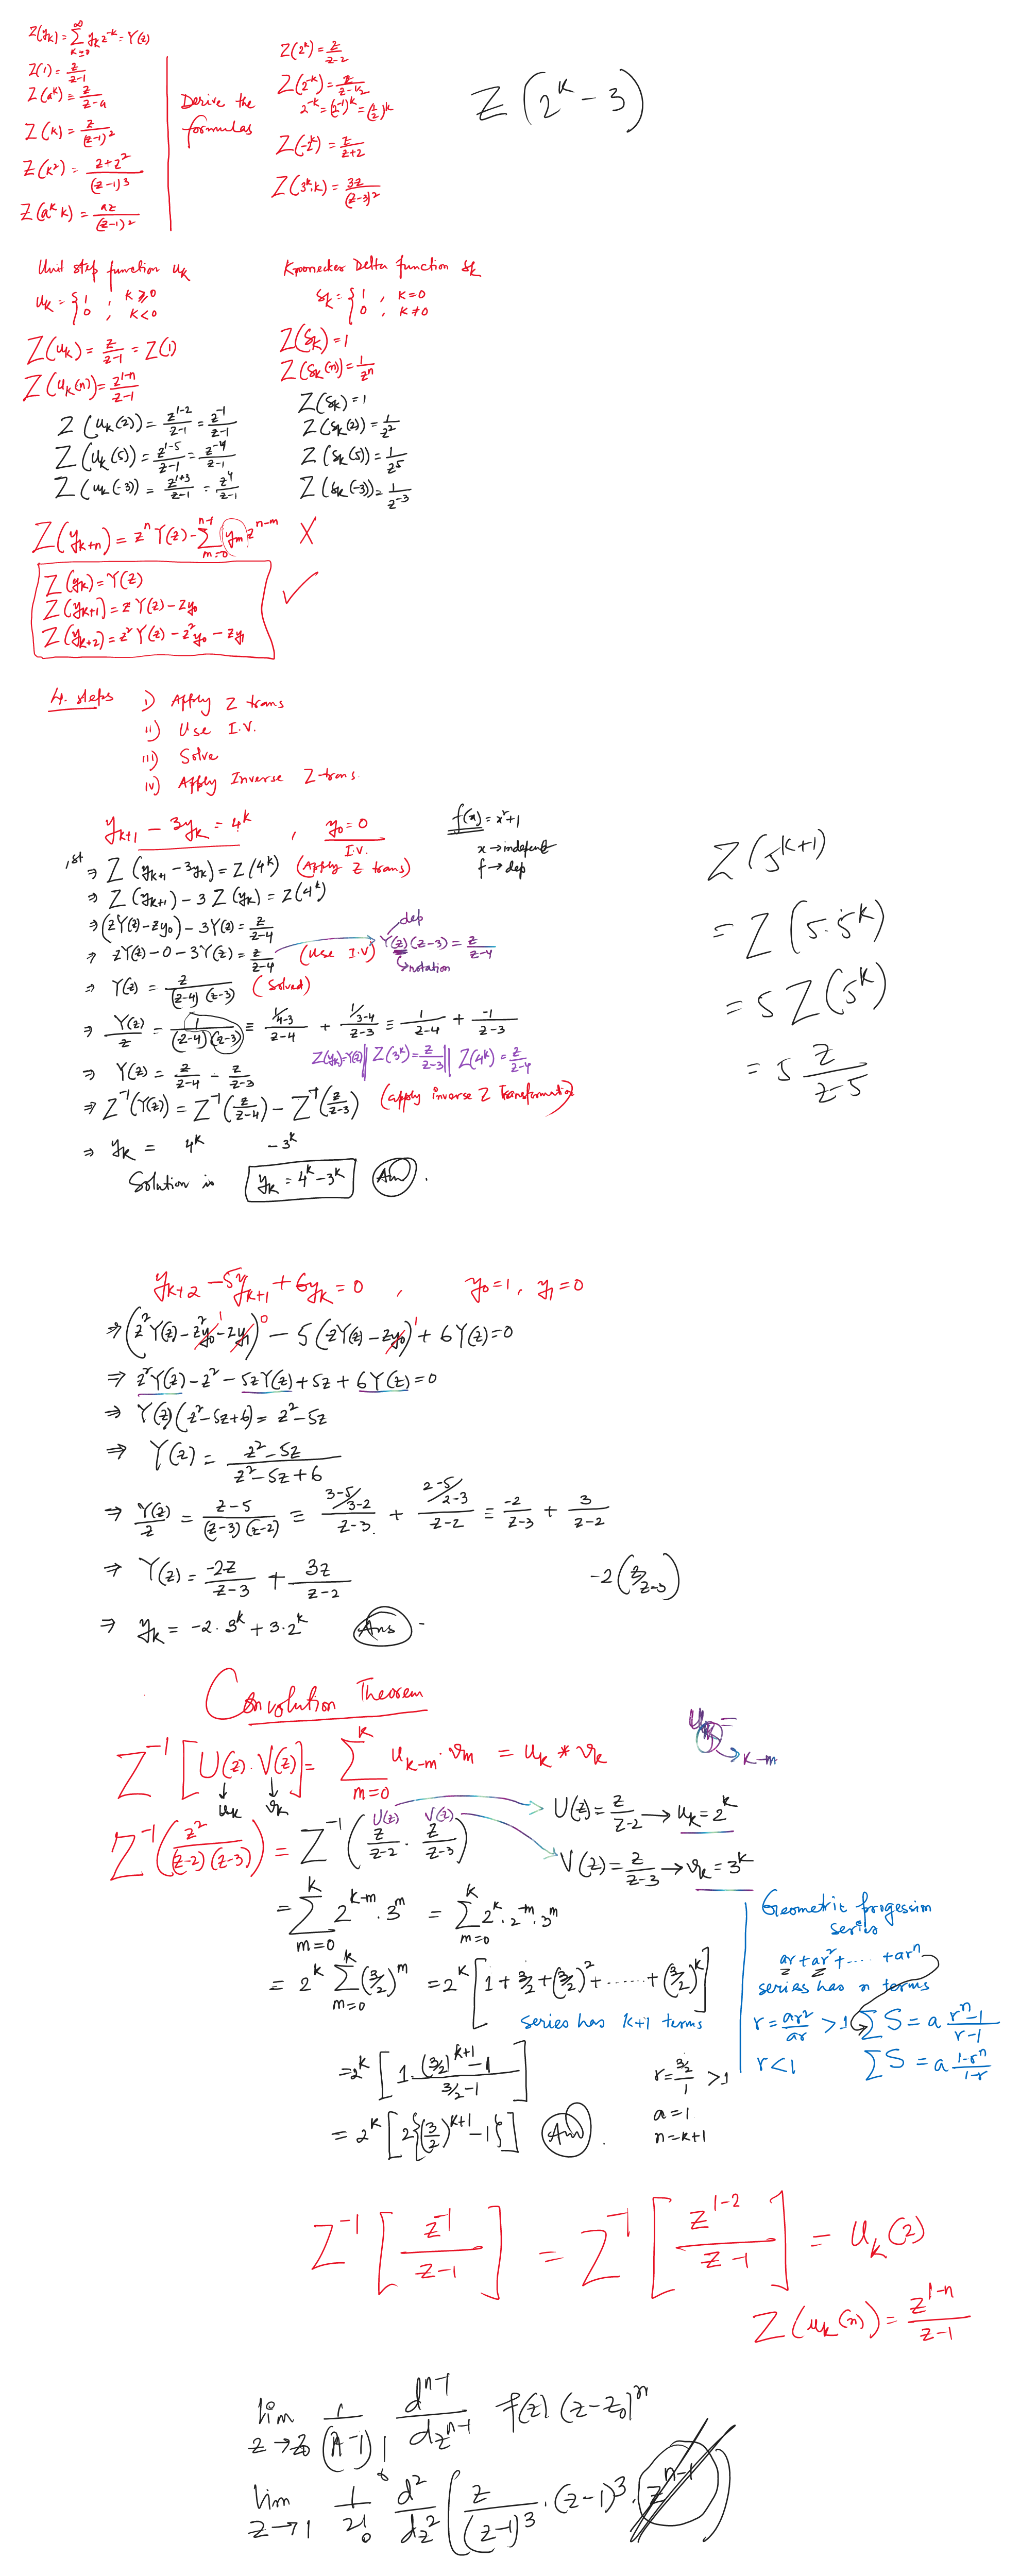 Z(y_k) = ∑_{k=0}^{∞} y_k z^{-k} = Y(z)
Z(1) = z/(z-1)
Z(a^k) = z/(z-a)
Z(k) = z/(z-1)^2
Z(k^2) = (z+z^2)/(z-1)^3
Z(a^k k) = az/(z-1)^2
Derive the
formulas
Z(2^k) = z/(z-2)
Z(2^{-k}) = z/(z-1/2)
2^{-k} = (2^{-1})^k = (1/2)^k
Z(-2^k) = z/(z+2)
Z(3^k·k) = 3z/(z-3)^2
Z(2^k - 3)
Unit step function u_k
u_k = { 1 , k ≥ 0
0 , k < 0
Z(u_k) = z/(z-1) = Z(1)
Z(u_k(n)) = z^{1-n}/(z-1)
Z(u_k(2)) = z^{1-2}/(z-1) = z^{-1}/(z-1)
Z(u_k(5)) = z^{1-5}/(z-1) = z^{-4}/(z-1)
Z(u_k(-3)) = z^{1+3}/(z-1) = z^4/(z-1)
Kronecker Delta function δ_k
δ_k = { 1 , k=0
0 , k≠0
Z(δ_k) = 1
Z(δ_k(n)) = 1/z^n
Z(δ_k) = 1
Z(δ_k(2)) = 1/z^2
Z(δ_k(5)) = 1/z^5
Z(δ_k(-3)) = 1/z^{-3}
Z(y_{k+n}) = z^n Y(z) - ∑_{m=0}^{n-1} y_m z^{n-m} X
Z(y_k) = Y(z)
Z(y_{k+1}) = z Y(z) - z y_0 ✓
Z(y_{k+2}) = z^2 Y(z) - z^2 y_0 - z y_1
4 steps i) Apply Z trans
ii) Use I.V.
iii) Solve
iv) Apply Inverse Z trans.
y_{k+1} - 3y_k = 4^k , y_0 = 0
I.V.
f(x) = x^2+1
x → indepent
f → dep
1st ⇒ Z(y_{k+1} - 3y_k) = Z(4^k) (Apply Z trans)
⇒ Z(y_{k+1}) - 3 Z(y_k) = Z(4^k)
⇒ (zY(z) - zy_0) - 3Y(z) = z/(z-4)
⇒ zY(z) - 0 - 3Y(z) = z/(z-4) (Use I.V)
dep
Y(z)(z-3) = z/(z-4)
notation
⇒ Y(z) = z/((z-4)(z-3)) (Solved)
⇒ Y(z)/z = 1/((z-4)(z-3)) ≡ (1/4-3)/(z-4) + (1/3-4)/(z-3) ≡ 1/(z-4) + -1/(z-3)
Z(y_k)=Y(z) || Z(3^k) = z/(z-3) || Z(4^k) = z/(z-4)
⇒ Y(z) = z/(z-4) - z/(z-3)
⇒ Z^{-1}(Y(z)) = Z^{-1}(z/(z-4)) - Z^{-1}(z/(z-3)) (apply inverse Z Transformation)
⇒ y_k = 4^k - 3^k
Solution is y_k = 4^k - 3^k Ans.
Z(5^{k+1})
= Z(5·5^k)
= 5 Z(5^k)
= 5 z/(z-5)
y_{k+2} - 5y_{k+1} + 6y_k = 0 , y_0 = 1, y_1 = 0
⇒ (z^2 Y(z) - z^2 y_0^1 - zy_1^0) - 5(zY(z) - zy_0^1) + 6Y(z) = 0
⇒ z^2 Y(z) - z^2 - 5zY(z) + 5z + 6Y(z) = 0
⇒ Y(z)(z^2-5z+6) = z^2-5z
⇒ Y(z) = (z^2-5z)/(z^2-5z+6)
⇒ Y(z)/z = (z-5)/((z-3)(z-2)) ≡ (3-5/3-2)/(z-3) + (2-5/2-3)/(z-2) ≡ -2/(z-3) + 3/(z-2)
⇒ Y(z) = -2z/(z-3) + 3z/(z-2)
-2(z/z-3)
⇒ y_k = -2·3^k + 3·2^k Ans.
Convolution Theorem
Z^{-1}[U(z)·V(z)] = ∑_{m=0}^{k} u_{k-m}·v_m = u_k * v_k
↓ ↓
u_k v_k
u_m =
k-m
Z^{-1}(z^2/((z-2)(z-3))) = Z^{-1}(z/(z-2) · z/(z-3))
U(z) V(z)
U(z) = z/(z-2) → u_k = 2^k
V(z) = z/(z-3) → v_k = 3^k
= ∑_{m=0}^{k} 2^{k-m}·3^m = ∑_{m=0}^{k} 2^k·2^{-m}·3^m
= 2^k ∑_{m=0}^{k} (3/2)^m = 2^k [1 + 3/2 + (3/2)^2 + ...... + (3/2)^k]
series has k+1 terms
= 2^k [1·((3/2)^{k+1} - 1)/(3/2-1)]
= 2^k [2{(3/2)^{k+1} - 1}] Ans.
r = (3/2)/1 > 1
a = 1
n = k+1
Geometric progession
series
ar + ar^2 + ..... + ar^n
series has n terms
r = ar^2/ar > 1 ∑S = a (r^n-1)/(r-1)
r < 1 ∑S = a (1-r^n)/(1-r)
Z^{-1}[z^{-1}/(z-1)] = Z^{-1}[z^{1-2}/(z-1)] = u_k(2)
Z(u_k(n)) = z^{1-n}/(z-1)
lim_{z→z_0} 1/(n-1)! d^{n-1}/dz^{n-1} f(z) (z-z_0)^n
lim_{z→1} 1/2! d^2/dz^2 (z/(z-1)^3 · (z-1)^3 · z^{n-1})